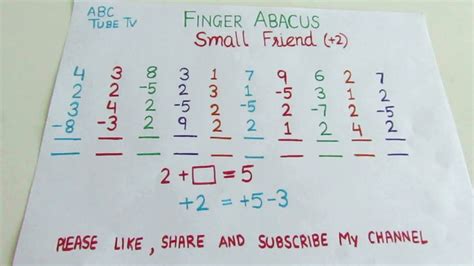 ABC
TUBE TV
FINGER ABACUS
Small Friend (+2)
4 3 8 3 1 7 9 6 2 7
2 2 -5 2 3 1 -5 3 1 2
3 4 2 -5 2 -5 2 -7 2 -5
-8 -3 2 9 2 2 1 2 4 2
2 + □ = 5
+2 = +5-3
PLEASE LIKE, SHARE AND SUBSCRIBE MY CHANNEL